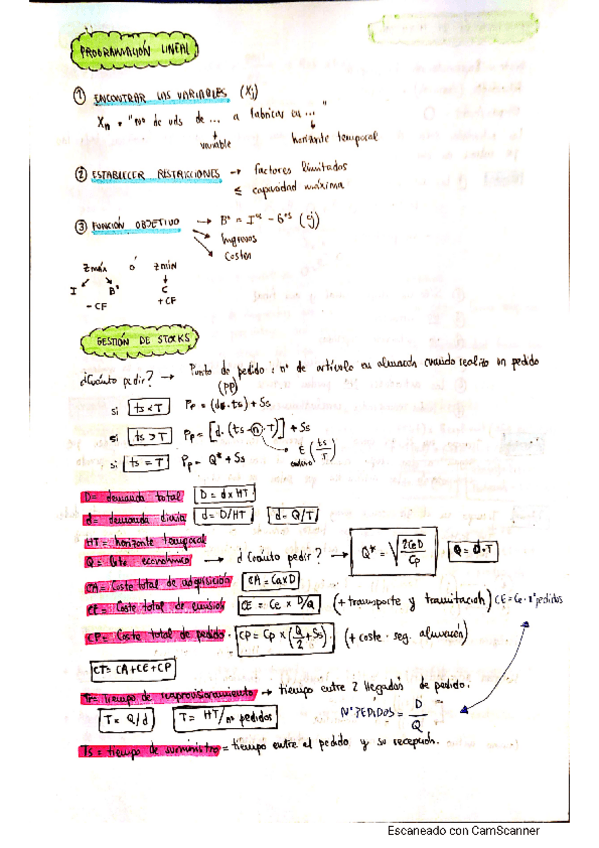 PROGRAMACIÓN LINEAL
① ENCONTRAR LAS VARIABLES (Xj)
Xn = "nº de uds de ... a fabricar en ..."
variable
horizonte temporal
② ESTABLECER RESTRICCIONES → factores limitados
≤ capacidad máxima
③ FUNCIÓN OBJETIVO → Bº = Iºˢ - Gºˢ (Cj)
Ingresos
Costes
Zmáx ó Zmín
I Bº C
- CF + CF
GESTIÓN DE STOCKS
¿Cuánto pedir? → Punto de pedido: nº de artículo en almacén cuando realizo un pedido
(PP)
si ts<T Pp = (d·ts) + Ss
si ts>T Pp = [d·(ts-n·T)] + Ss
E (ts/T)
entero
si ts = T Pp = Q* + Ss
D = demanda total D = d x HT
d = demanda diaria d = D/HT d = Q/T
HT = horizonte temporal
Q = lote económico → ¿Cuánto pedir? → Q* = √(2CeD/Cp) Q = d·T
CA = Coste total de adquisición CA = Ca x D
CE = Coste total de emisión CE = Ce x D/Q (+ transporte y tramitación) CE = Ce · nº pedidos
CP = Coste total de pedido · CP = Cp x (Q/2 + Ss) (+ coste · seg. almacén)
CT = CA + CE + CP
Tr = tiempo de reaprovisionamiento → tiempo entre 2 llegadas de pedido.
T = Q/d T = HT/nº pedidos Nº PEDIDOS = D/Q
Ts = tiempo de suministro = tiempo entre el pedido y su recepción.
Escaneado con CamScanner